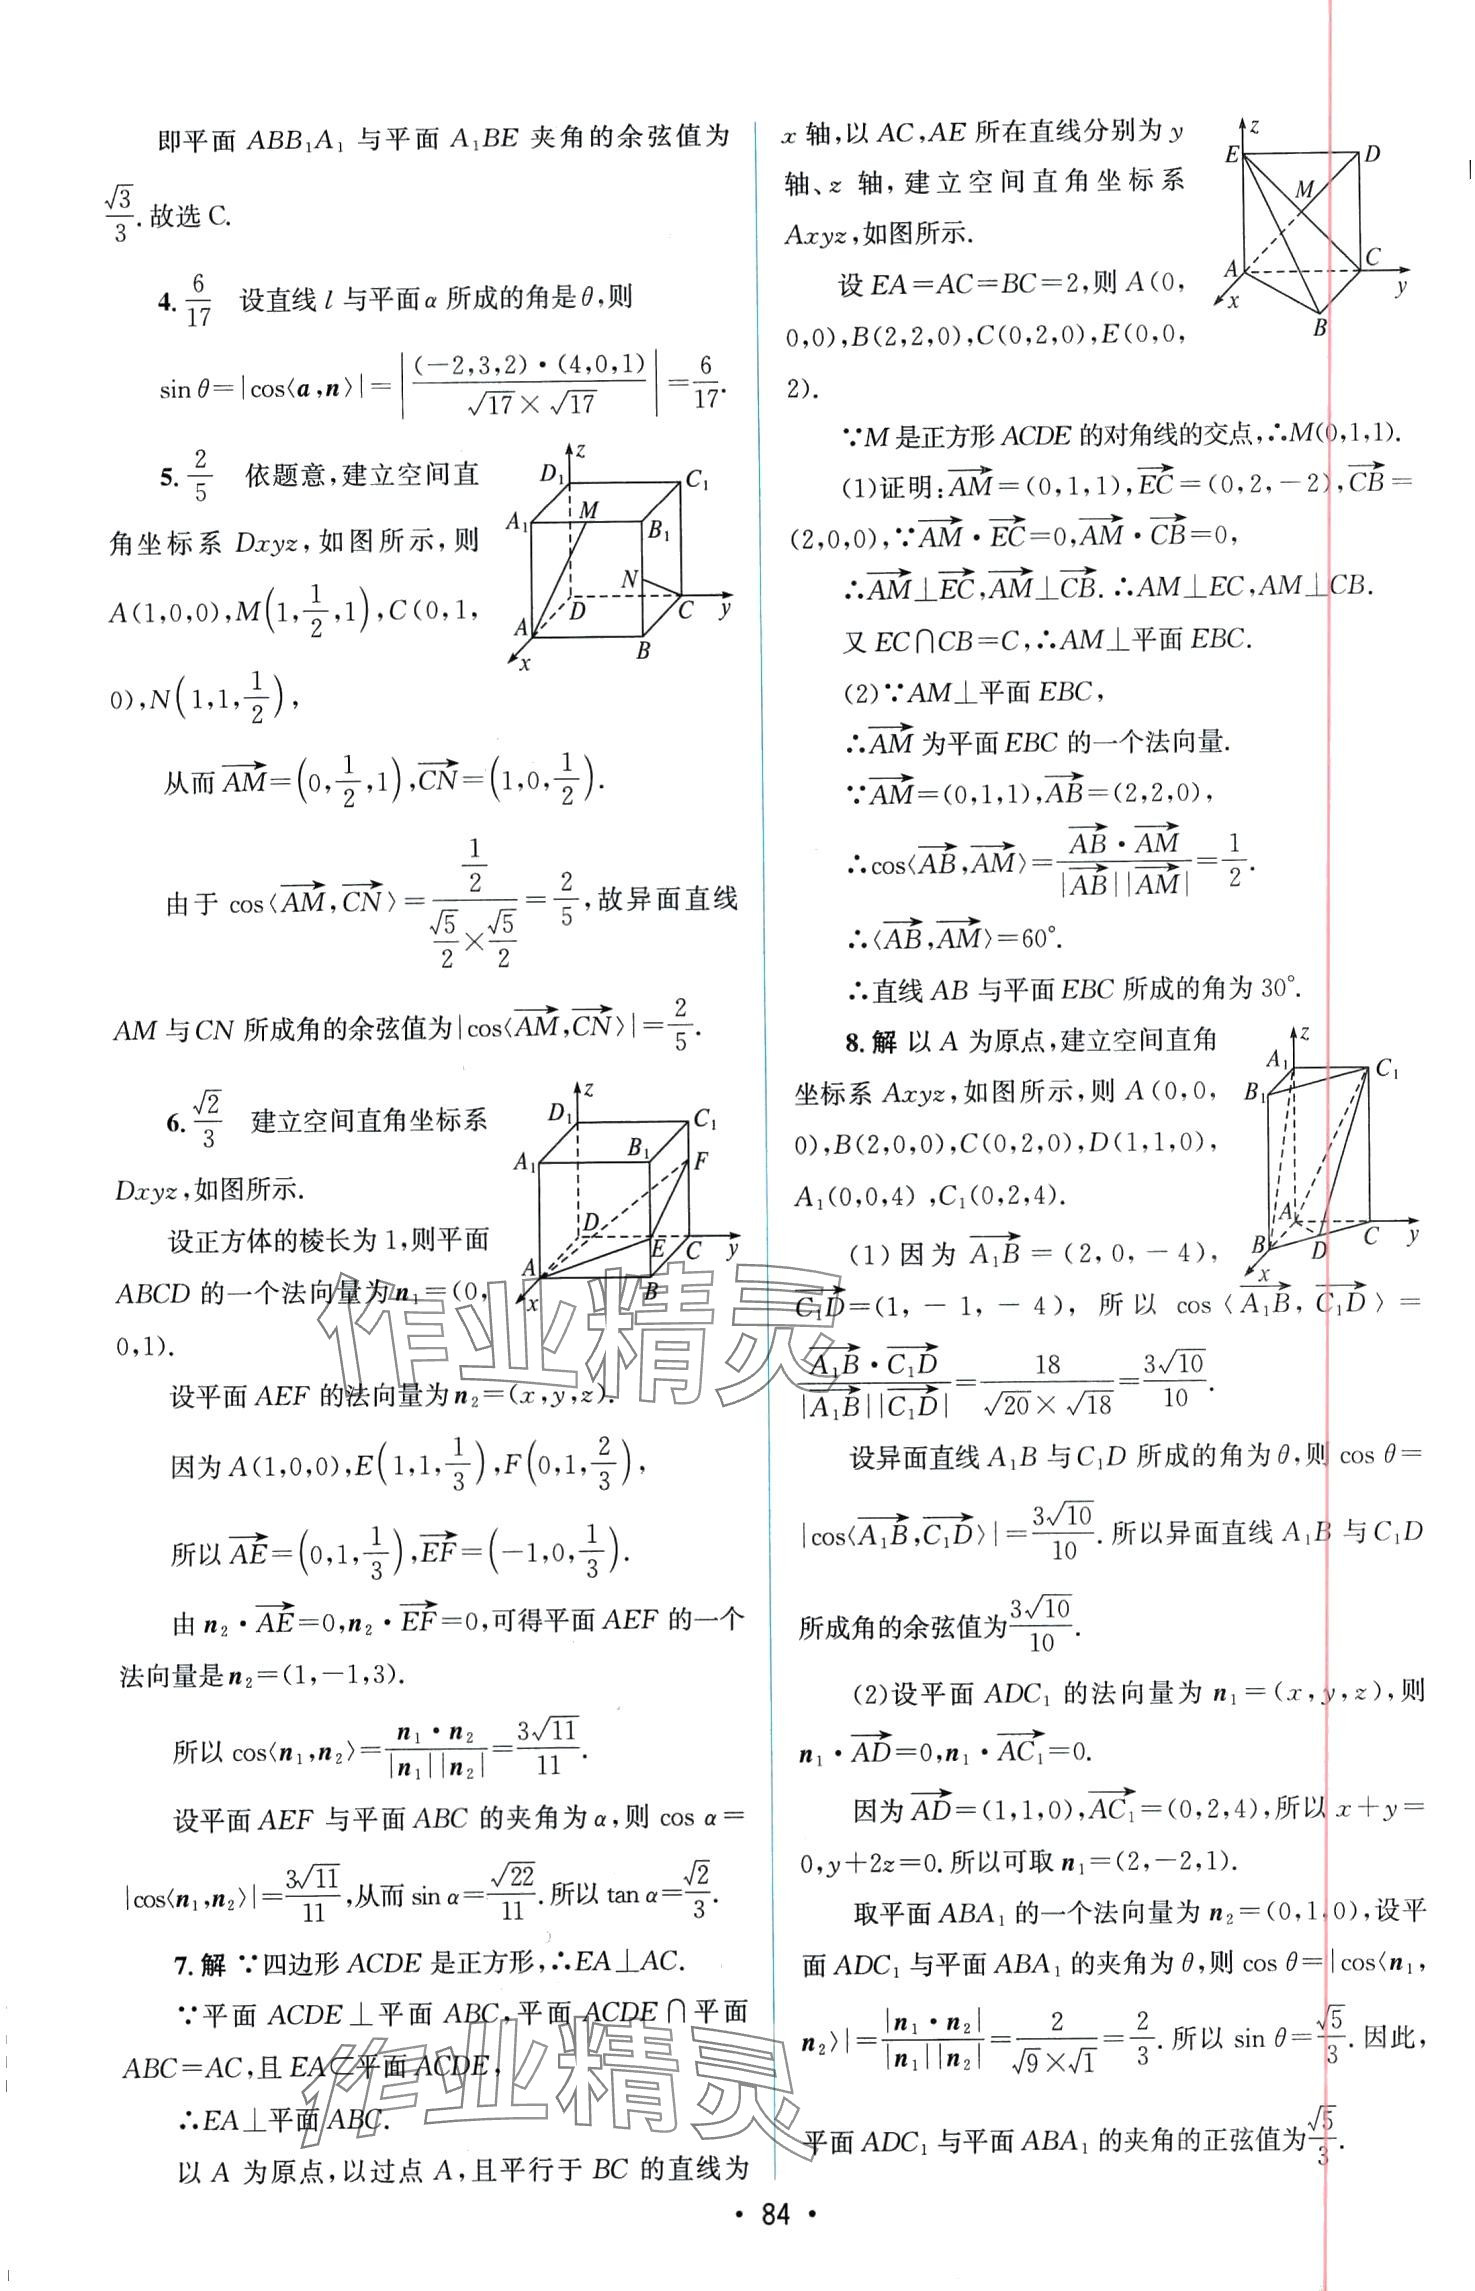 即平面 ABB₁A₁ 与平面 A₁BE 夹角的余弦值为
√3/3. 故选C.
4. 6/17 设直线 l 与平面 α 所成的角是 θ,则
sin θ=|cos⟨a,n⟩|=|(-2,3,2)·(4,0,1)/(√17×√17)|=6/17.
5. 2/5 依题意,建立空间直
角坐标系 Dxyz,如图所示,则
A(1,0,0),M(1,1/2,1),C(0,1,
0),N(1,1,1/2),
从而 AM→=(0,1/2,1),CN→=(1,0,1/2).
由于 cos⟨AM→,CN→⟩=(1/2)/(√5/2×√5/2)=2/5,故异面直线
AM 与 CN 所成角的余弦值为|cos⟨AM→,CN→⟩|=2/5.
z
D₁
C₁
A₁
M
B₁
N
D
C
y
A
B
x
6. √2/3 建立空间直角坐标系
Dxyz,如图所示.
设正方体的棱长为1,则平面
ABCD 的一个法向量为 n₁=(0,
0,1).
设平面 AEF 的法向量为 n₂=(x,y,z).
因为 A(1,0,0),E(1,1,1/3),F(0,1,2/3),
所以 AE→=(0,1,1/3),EF→=(-1,0,1/3).
由 n₂·AE→=0,n₂·EF→=0,可得平面 AEF 的一个
法向量是 n₂=(1,-1,3).
所以 cos⟨n₁,n₂⟩=n₁·n₂/|n₁||n₂|=3√11/11.
设平面 AEF 与平面 ABC 的夹角为 α,则 cos α=
|cos⟨n₁,n₂⟩|=3√11/11,从而 sin α=√22/11. 所以 tan α=√2/3.
z
D₁
C₁
A₁
B₁
F
D
E
C
y
A
B
x
7. 解 ∵四边形 ACDE 是正方形,∴EA⊥AC.
∵平面 ACDE⊥平面 ABC,平面 ACDE∩平面
ABC=AC,且 EA⊂平面 ACDE,
∴EA⊥平面 ABC.
以 A 为原点,以过点 A,且平行于 BC 的直线为
x 轴,以 AC,AE 所在直线分别为 y
轴、z 轴,建立空间直角坐标系
Axyz,如图所示.
设 EA=AC=BC=2,则 A(0,
0,0),B(2,2,0),C(0,2,0),E(0,0,
2).
z
E
D
M
A
C
x
y
B
∵M 是正方形 ACDE 的对角线的交点,∴M(0,1,1).
(1)证明:AM→=(0,1,1),EC→=(0,2,-2),CB→=
(2,0,0),∵AM→·EC→=0,AM→·CB→=0,
∴AM→⊥EC→,AM→⊥CB→.∴AM⊥EC,AM⊥CB.
又 EC∩CB=C,∴AM⊥平面 EBC.
(2)∵AM⊥平面 EBC,
∴AM→为平面 EBC 的一个法向量.
∵AM→=(0,1,1),AB→=(2,2,0),
∴cos⟨AB→,AM→⟩=AB→·AM→/|AB→||AM→|=1/2.
∴⟨AB→,AM→⟩=60°.
∴直线 AB 与平面 EBC 所成的角为 30°.
8. 解 以 A 为原点,建立空间直角
坐标系 Axyz,如图所示,则 A(0,0,
0),B(2,0,0),C(0,2,0),D(1,1,0),
A₁(0,0,4),C₁(0,2,4).
z
A₁
C₁
B₁
A
B
D
C
y
x
(1)因为 A₁B→=(2,0,-4),
C₁D→=(1,-1,-4),所以 cos⟨A₁B→,C₁D→⟩=
A₁B→·C₁D→/|A₁B→||C₁D→|=18/(√20×√18)=3√10/10.
设异面直线 A₁B 与 C₁D 所成的角为 θ,则 cos θ=
|cos⟨A₁B→,C₁D→⟩|=3√10/10. 所以异面直线 A₁B 与 C₁D
所成角的余弦值为3√10/10.
(2)设平面 ADC₁ 的法向量为 n₁=(x,y,z),则
n₁·AD→=0,n₁·AC₁→=0.
因为AD→=(1,1,0),AC₁→=(0,2,4),所以 x+y=
0,y+2z=0. 所以可取 n₁=(2,-2,1).
取平面 ABA₁ 的一个法向量为 n₂=(0,1,0),设平
面 ADC₁ 与平面 ABA₁ 的夹角为 θ,则 cos θ=|cos⟨n₁,
n₂⟩|=|n₁·n₂|/|n₁||n₂|=2/(√9×√1)=2/3. 所以 sin θ=√5/3. 因此,
平面 ADC₁ 与平面 ABA₁ 的夹角的正弦值为√5/3.
作业精灵
作业精灵
· 84 ·